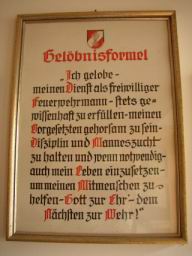 Gelöbnisformel
„Ich gelobe-
meinen Dienst als freiwilliger
Feuerwehrmann-stets ge=
wissenhaft zu erfüllen-meinen
Vorgesetzten gehorsam zu sein-
Disziplin und Manneszucht
zu halten und wenn notwendig-
auch mein Leben einzusetzen-
um meinen Mitmenschen zu=
helfen-Gott zur Ehr'-dem
Nächsten zur Wehr!"